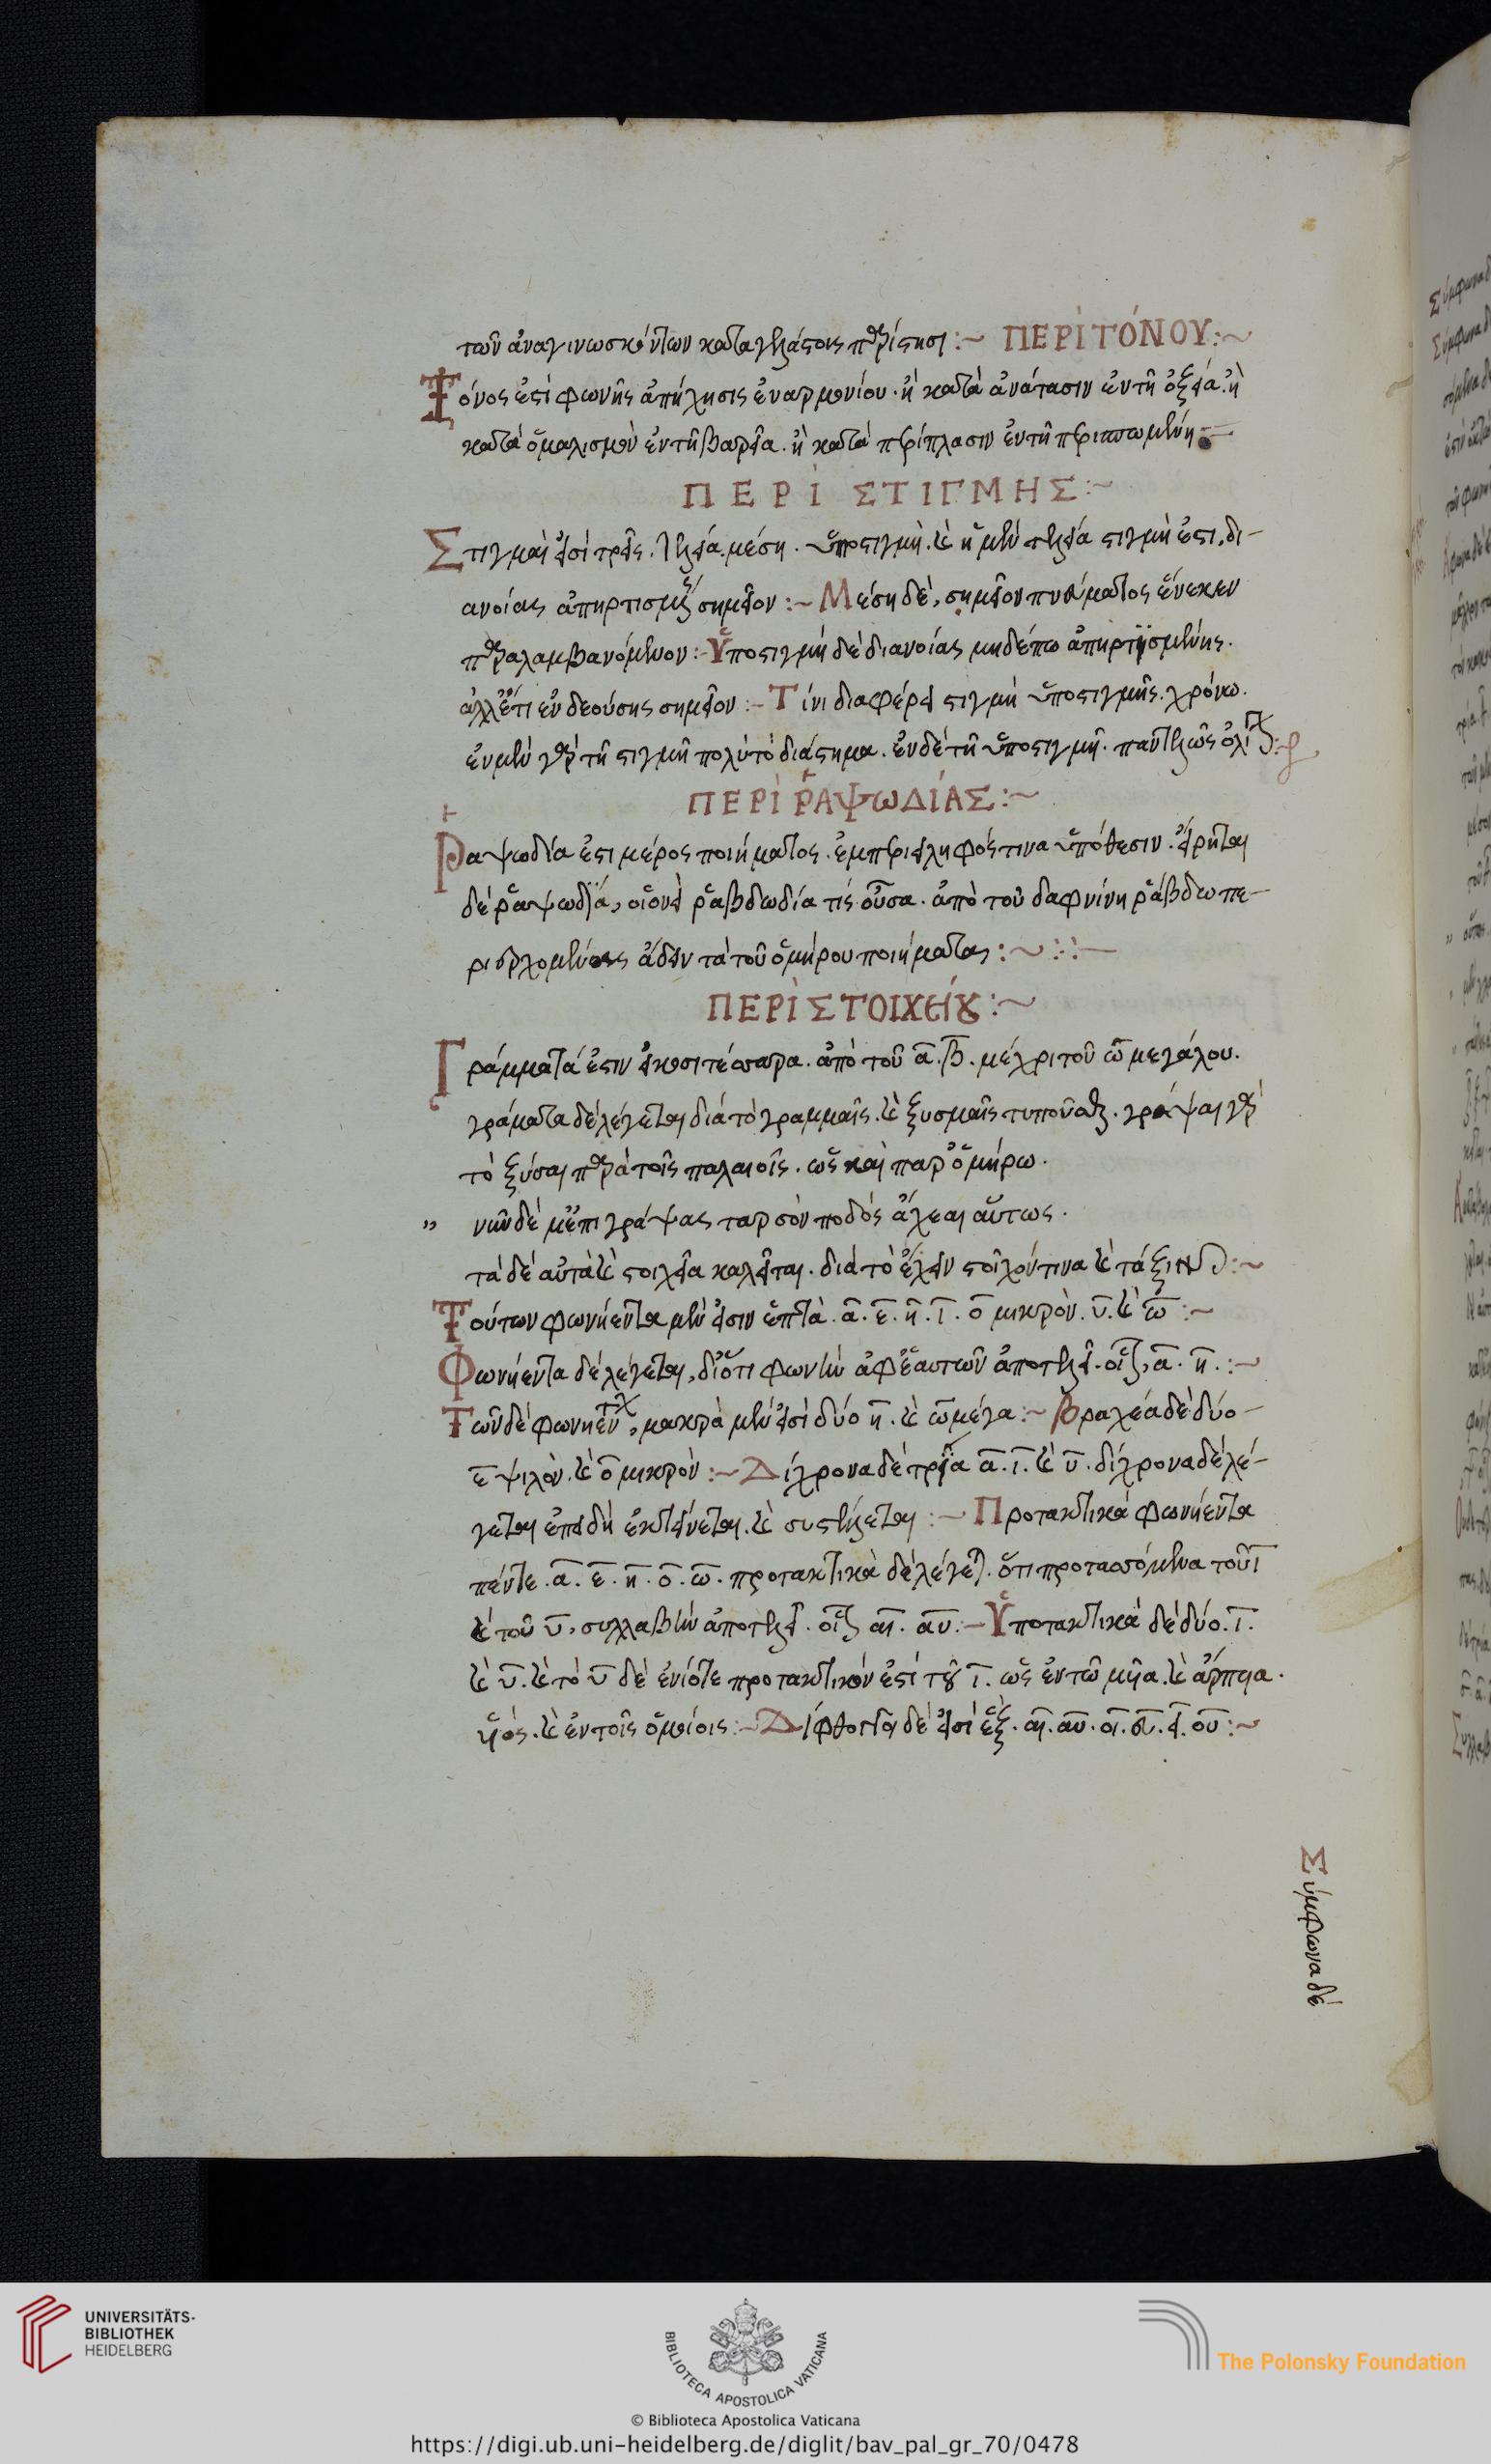 τῶν ἀναγινωσκόντων καταγελάστους παρίστησι :~ ΠΕΡῚ ΤΌΝΟΥ :~
Τόνος ἐστὶ φωνῆς ἀπήχησις ἐναρμονίου · ἢ κατὰ ἀνάτασιν ἐν τῆ ὀξεία · ἢ
κατὰ ὁμαλισμὸν ἐν τῆ βαρεία · ἢ κατὰ περίκλασιν ἐν τῆ περισπωμένη :~
ΠΕΡῚ ΣΤΙΓΜΗΣ :~
Στιγμαὶ εἰσὶ τρεῖς · τελεία · μέση · ὑποστιγμὴ · καὶ ἡ μὲν τελεία στιγμὴ ἐστι, δι-
ανοίας ἀπηρτισμένης σημεῖον :~ Μέση δὲ, σημεῖον πνεύματος ἕνεκεν
παραλαμβανόμενον :- Ὑποστιγμὴ δὲ διανοίας μηδέπω ἀπηρτϊσμένης ·
ἀλλ' ἔτι ἐνδεούσης σημεῖον :- Τίνι διαφέρει στιγμὴ ὑποστιγμῆς · χρόνω ·
ἐν μὲν γὰρ τῆ στιγμῆ πολὺ τὸ διάστημα · ἐν δὲ τῆ ὑποστιγμῆ · παντελῶς ὀλίγον :~
ΠΕΡῚ ῬΑΨΩΔΊΑΣ :~
Ῥαψωδία ἐστι μέρος ποιήματος · ἐμπεριειληφός τινα ὑπόθεσιν · εἴρηται
δὲ ῥαψωδία, οἱονεὶ ῥαβδωδία τὶς οὖσα · ἀπὸ τοῦ δαφνίνη ῥάβδω πε-
ριερχομένους ἄδειν τὰ τοῦ ὁμήρου ποιήματα :~
ΠΕΡῚ ΣΤΟΙΧΕΊΟΥ :~
Γράμματά ἐστιν εἰκοσιτέσσαρα · ἀπὸ τοῦ α · β · μέχρι τοῦ ω μεγάλου ·
γράματα δὲ λέγεται διὰ τὸ γραμμαῖς · καὶ ξυσμαῖς τυποῦσθαι · γράψαι γὰρ
τὸ ξύσαι παρὰ τοῖς παλαιοῖς · ὡς καὶ παρ' ὁμήρω ·
" νῦν δέ μ' ἐπιγράψας ταρσὸν ποδὸς ἄχεαι αὕτως ·
τὰ δὲ αὐτὰ καὶ στοιχεῖα καλεῖται · διὰ τὸ ἔχειν στοῖχόν τινα καὶ τάξιν :~
Τούτων φωνήεντα μέν εἰσιν ἑπτὰ · α · ε · η · ι · ο μικρὸν · υ · καὶ ω :~
Φωνήεντα δὲ λέγεται, διότι φωνὴν ἀφ' ἑαυτῶν ἀποτελεῖ · οἷον, α · η · :~
Τῶν δὲ φωνηέντων, μακρὰ μέν εἰσὶ δύο η · καὶ ω μέγα :~ Βραχέα δὲ δύο -
ε ψιλὸν · καὶ ο μικρὸν :~ Δίχρονα δὲ τρία α · ι · καὶ υ · δίχρονα δὲ λέ-
γεται ἐπειδὴ ἐκτείνεται · καὶ συστέλλεται :~ Προτακτικὰ φωνήεντα
πέντε · α · ε · η · ο · ω · προτακτικὰ δὲ λέγεται · ὅτι προτασσόμενα τοῦ ι
καὶ τοῦ υ, συλλαβὴν ἀποτελεῖ · οἷον αι · αυ :- Ὑποτακτικὰ δὲ δύο · ι ·
καὶ υ · καὶ τὸ υ δὲ ἐνίοτε προτακτικόν ἐστί τοῦ ι · ὡς ἐν τῶ μυῖα · καὶ ἅρπυια ·
υἱός · καὶ ἐν τοῖς ὁμοίοις :- Δίφθογγοι δέ εἰσὶ ἕξ · αι · αυ · οι · ευ · ει · ου :~
Σύμφωνα δὲ
UNIVERSITÄTS-
BIBLIOTHEK
HEIDELBERG
BIBLIOTECA APOSTOLICA VATICANA
The Polonsky Foundation
© Biblioteca Apostolica Vaticana
https://digi.ub.uni-heidelberg.de/diglit/bav_pal_gr_70/0478